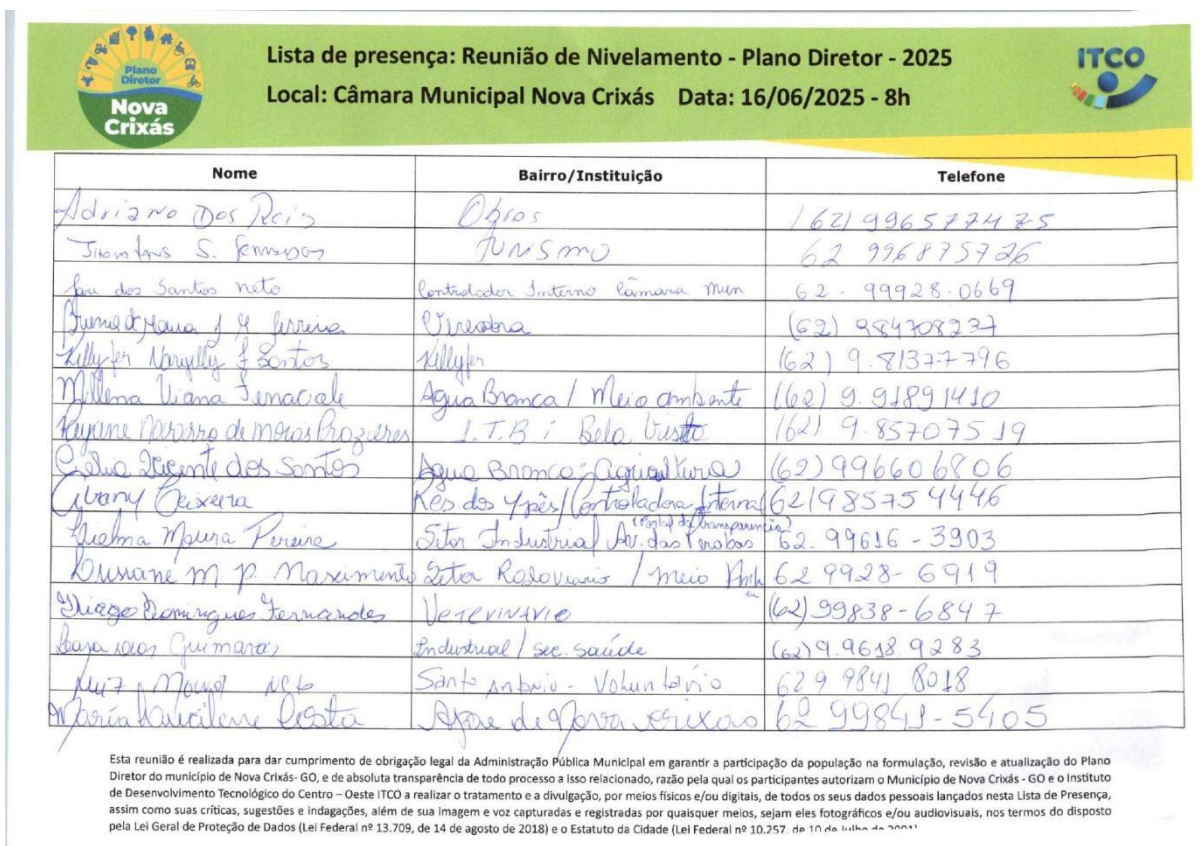 Plano
Diretor
Nova
Crixás
Lista de presença: Reunião de Nivelamento - Plano Diretor - 2025
Local: Câmara Municipal Nova Crixás Data: 16/06/2025 - 8h
ITCO
Nome Bairro/Instituição Telefone
Adriano Dos Reis Obras (62) 996577475
S. TURISMO 62 996875726
dos Santos neto Controlador Interno Câmara Mun 62. 99928-0669
(62) 984708237
Killyfer Santos Killyfer (62) 9.81377796
Millena Viana Água Branca / Meio ambiente (62) 9.91891410
Rayane de Morais Prazeres I.T.B i Bela Vista (62) 9.85707519
Célia Vicente dos Santos Água Branca - agricultura (62) 996606806
Teixeira Res dos Ypês/Controladora Interna 62) 985754446
(Portal da transparencia)
Moura Pereira Setor Industrial Av. das Perobas 62. 99616-3903
M P. Nascimento Setor Rodoviario / meio Amb 62 9928-6919
Thiago Domingues Fernandes VETERINÁRIO (62) 99838-6847
Guimarães Industrial / sec. saúde (62) 9.9618.9283
Luiz Neto Santo Antônio - Voluntário 629 9841 8018
Maria Costa de Nova crixas 62 99841-5405
Esta reunião é realizada para dar cumprimento de obrigação legal da Administração Pública Municipal em garantir a participação da população na formulação, revisão e atualização do Plano
Diretor do município de Nova Crixás- GO, e de absoluta transparência de todo processo a isso relacionado, razão pela qual os participantes autorizam o Município de Nova Crixás - GO e o Instituto
de Desenvolvimento Tecnológico do Centro – Oeste ITCO a realizar o tratamento e a divulgação, por meios físicos e/ou digitais, de todos os seus dados pessoais lançados nesta Lista de Presença,
assim como suas críticas, sugestões e indagações, além de sua imagem e voz capturadas e registradas por quaisquer meios, sejam eles fotográficos e/ou audiovisuais, nos termos do disposto
pela Lei Geral de Proteção de Dados (Lei Federal nº 13.709, de 14 de agosto de 2018) e o Estatuto da Cidade (Lei Federal nº 10.257, de 10 de julho de 2001)